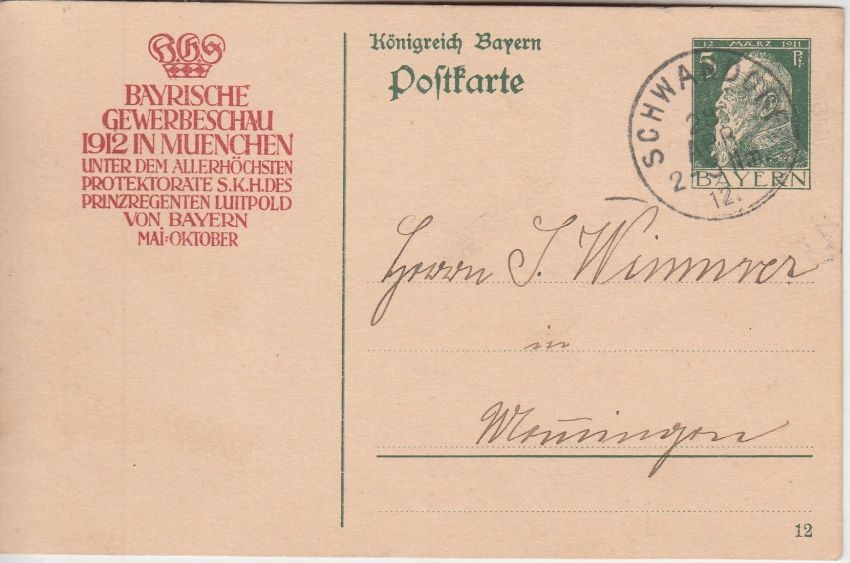 B.G.S
BAYRISCHE
GEWERBESCHAU
1912 IN MUENCHEN
UNTER DEM ALLERHÖCHSTEN
PROTEKTORATE S.K.H. DES
PRINZREGENTEN LUITPOLD
VON BAYERN
MAI=OKTOBER
Königreich Bayern
Postkarte
12 MÆRZ 1911
5 Pf.
BAYERN
29
APR
12.
Herrn J. Wimmer
in
12